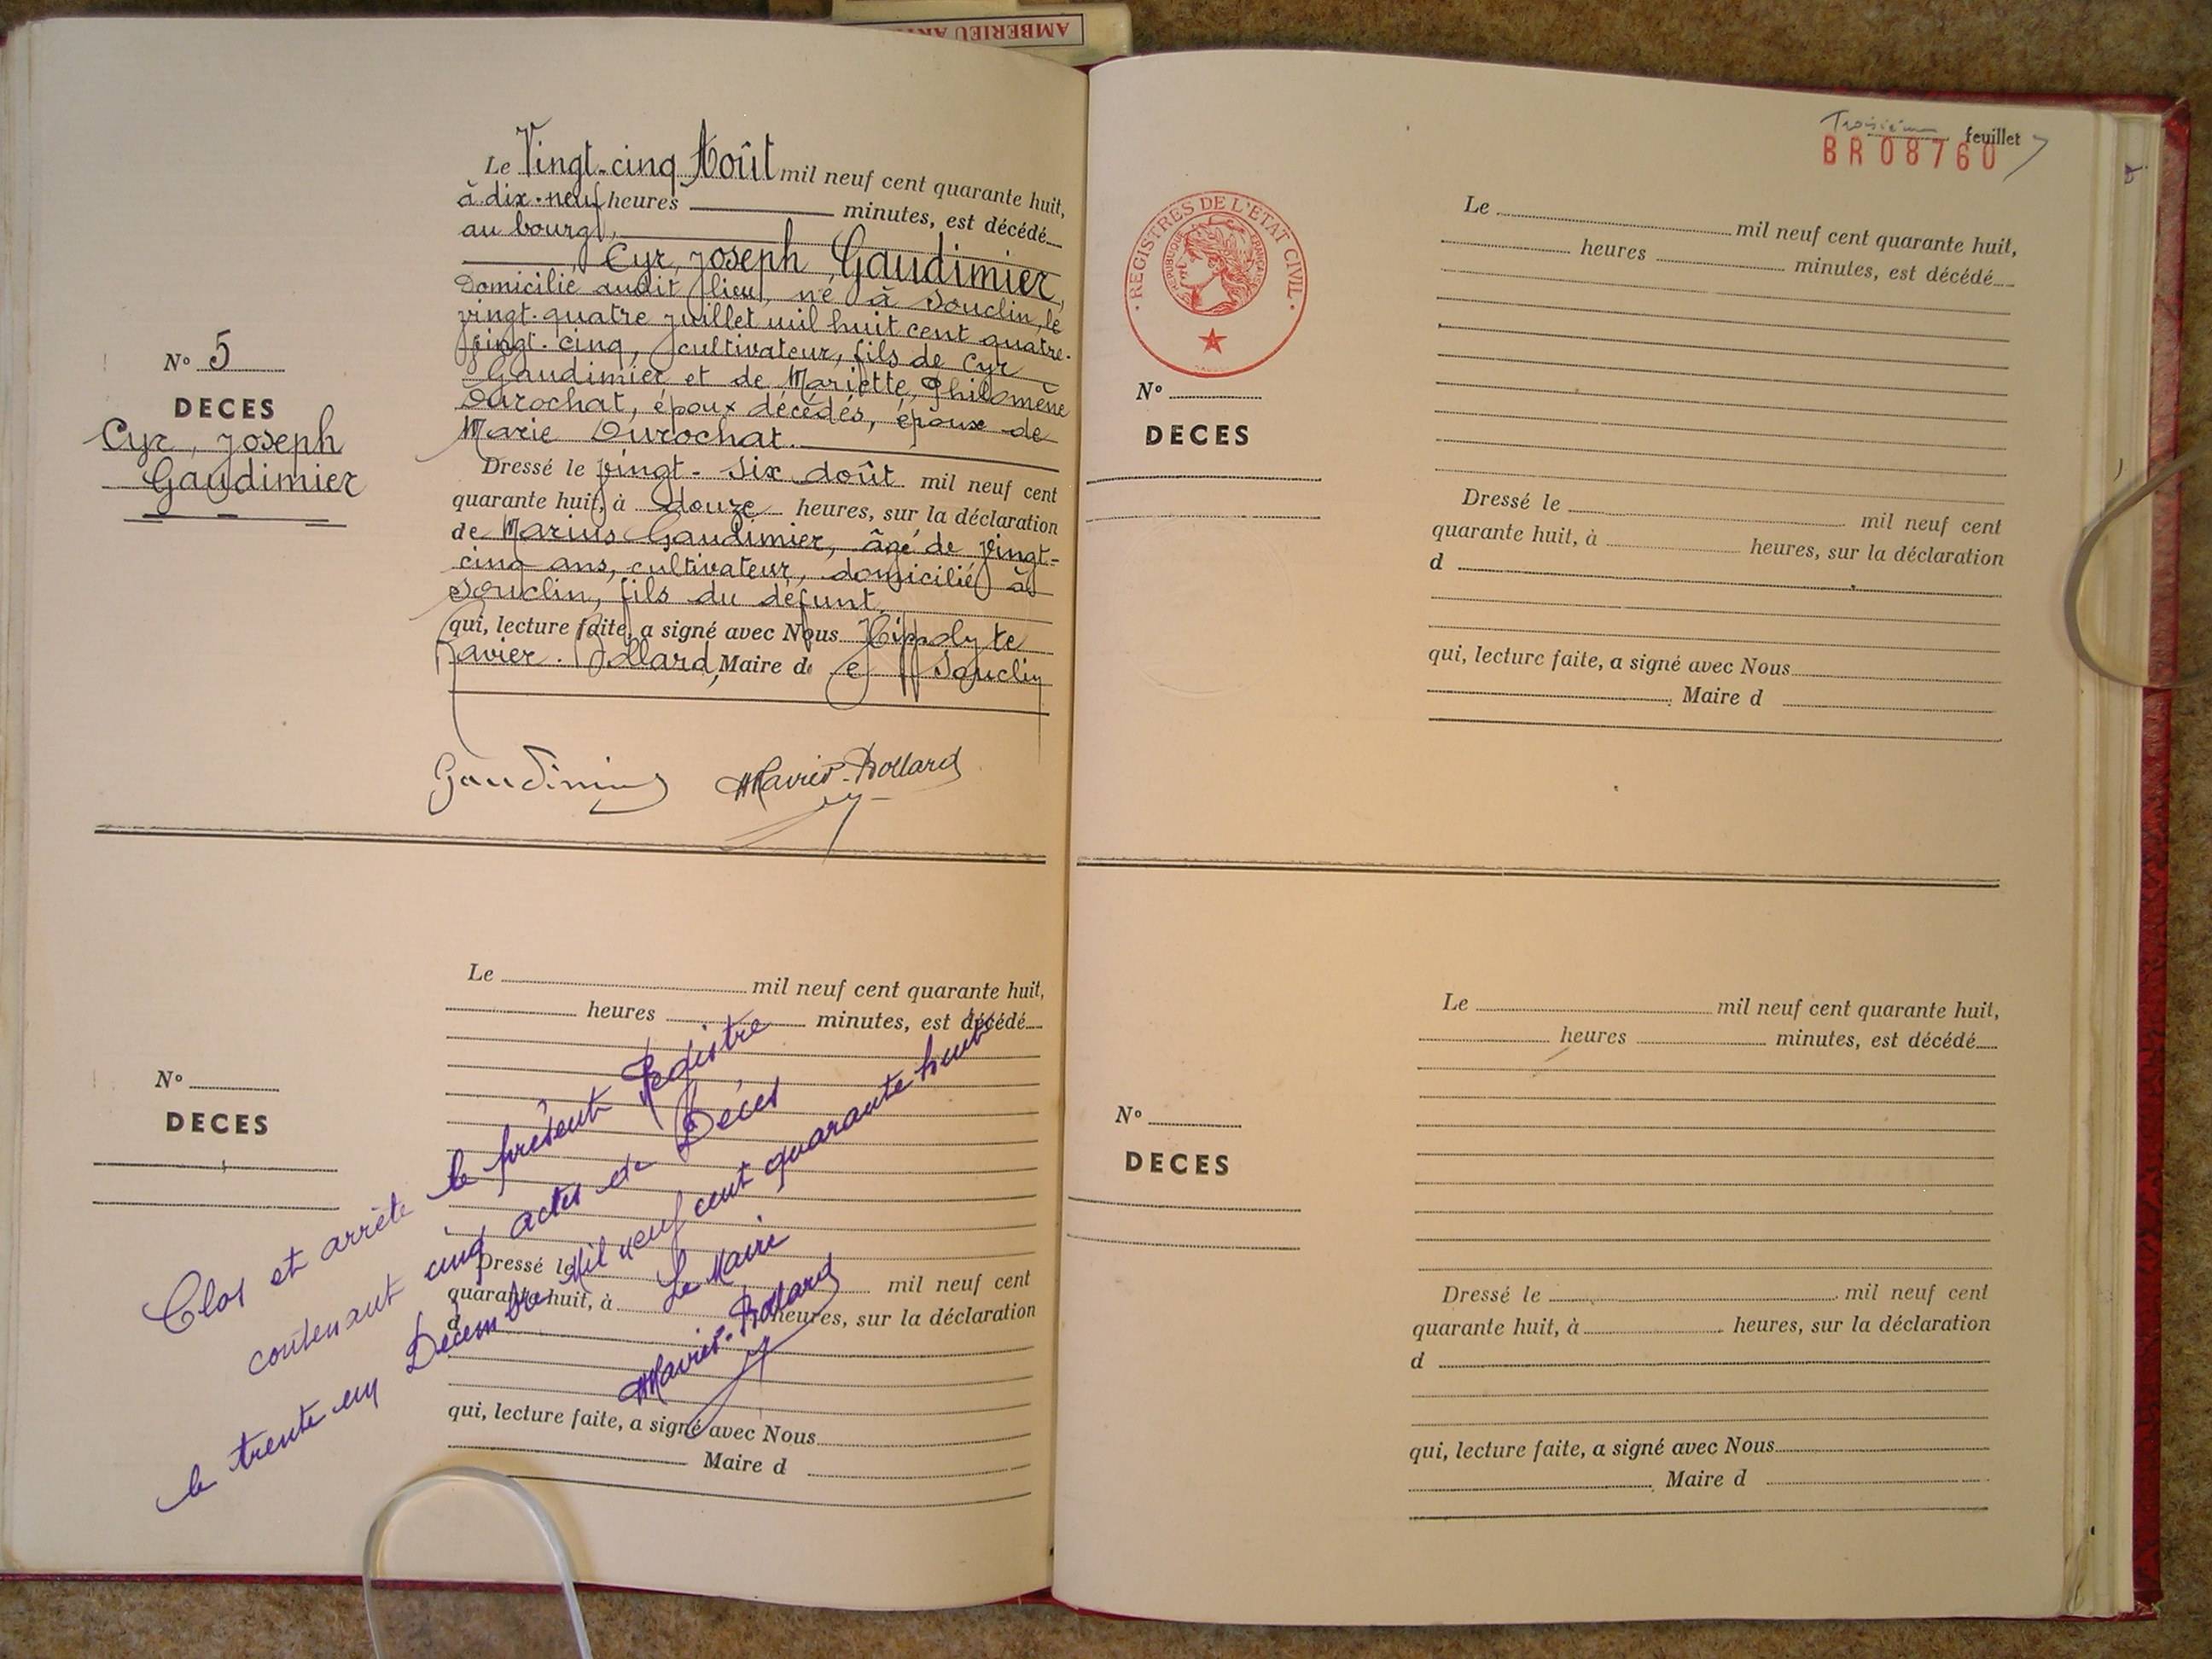 AMBERIEU
Le Vingt-cinq Août mil neuf cent quarante huit,
à dix-neuf heures minutes, est décédé
au bourg,
Cyr, Joseph Gaudimier,
domicilié audit lieu, né à Souclin, le
vingt-quatre juillet mil huit cent quatre-
vingt-cinq, cultivateur, fils de Cyr
Gaudimier et de Mariette, Philomène
Durochat, époux décédés, époux de
Marie Durochat.
N° 5
DECES
Cyr, Joseph
Gaudimier
Dressé le vingt-six août mil neuf cent
quarante huit, à douze heures, sur la déclaration
de Marius Gaudimier, âgé de vingt-
cinq ans, cultivateur, domicilié à
Souclin, fils du défunt,
qui, lecture faite, a signé avec Nous Hippolyte
Mavier-Rollard, Maire de Souclin
Gaudimier HMavier-Rollard
Le mil neuf cent quarante huit,
heures minutes, est décédé
N°
DECES
Dressé le mil neuf cent
quarante huit, à heures, sur la déclaration
d
qui, lecture faite, a signé avec Nous
Maire d
Clos et arrêté le présent Registre
contenant cinq actes de Décès
le trente un Décembre Mil neuf cent quarante huit
Le Maire
HMavier-Rollard
Troisième feuillet
BR08760
REGISTRES DE L'ETAT CIVIL
REPUBLIQUE FRANÇAISE
Le mil neuf cent quarante huit,
heures minutes, est décédé
N°
DECES
Dressé le mil neuf cent
quarante huit, à heures, sur la déclaration
d
qui, lecture faite, a signé avec Nous
Maire d
Le mil neuf cent quarante huit,
heures minutes, est décédé
N°
DECES
Dressé le mil neuf cent
quarante huit, à heures, sur la déclaration
d
qui, lecture faite, a signé avec Nous
Maire d